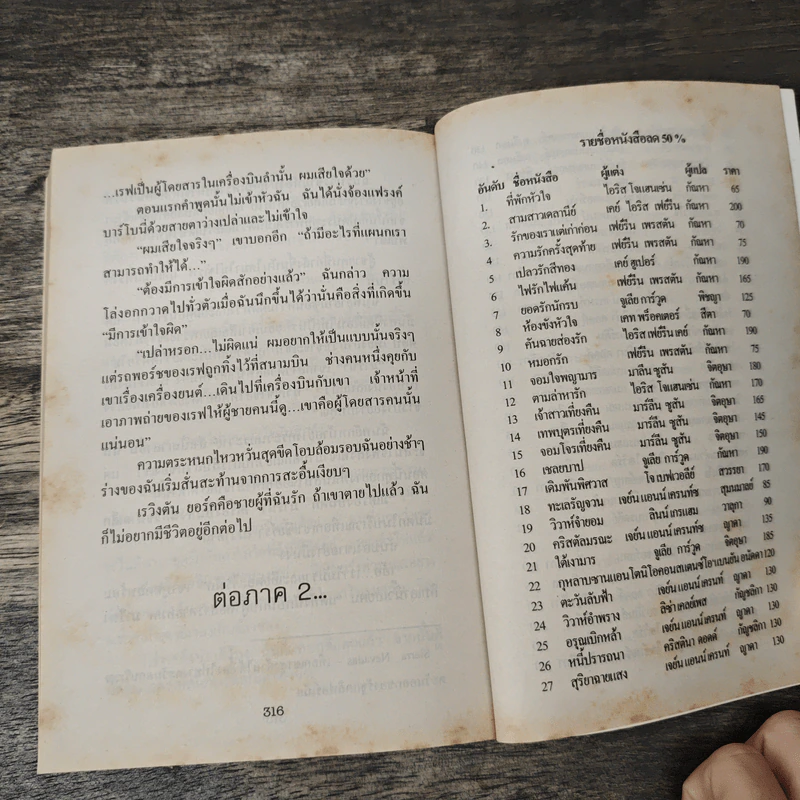 ...เรฟเป็นผู้โดยสารในเครื่องบินลำนั้น ผมเสียใจด้วย”
ตอนแรกคำพูดนั้นไม่เข้าหัวฉัน ฉันได้นั่งจ้องแฟรงค์
บาร์โบนี่ด้วยสายตาว่างเปล่าและไม่เข้าใจ
“ผมเสียใจจริงๆ” เขาบอกอีก “ถ้ามีอะไรที่แผนกเรา
สามารถทำให้ได้...”
“ต้องมีการเข้าใจผิดสักอย่างแล้ว” ฉันกล่าว ความ
โล่งอกกวาดไปทั่วตัวเมื่อฉันนึกขึ้นได้ว่านั่นคือสิ่งที่เกิดขึ้น
“มีการเข้าใจผิด”
“เปล่าหรอก...ไม่ผิดแน่ ผมอยากให้เป็นแบบนั้นจริงๆ
แต่รถพอร์ชของเรฟถูกทิ้งไว้ที่สนามบิน ช่างคนหนึ่งคุยกับ
เขาเรื่องเครื่องยนต์...เดินไปที่เครื่องบินกับเขา เจ้าหน้าที่
เอาภาพถ่ายของเรฟให้ผู้ชายคนนี้ดู...เขาคือผู้โดยสารคนนั้น
แน่นอน”
ความตระหนกไหวหวั่นสุดขีดโอบล้อมรอบฉันอย่างช้าๆ
ร่างของฉันเริ่มสั่นสะท้านจากการสะอื้นเงียบๆ
เรวิงตัน ยอร์คคือชายผู้ที่ฉันรัก ถ้าเขาตายไปแล้ว ฉัน
ก็ไม่อยากมีชีวิตอยู่อีกต่อไป
ต่อภาค 2...
316
รายชื่อหนังสือลด 50 %
อันดับ ชื่อหนังสือ ผู้แต่ง ผู้แปล ราคา
1. ที่พักหัวใจ ไอริส โจแฮนเซ่น กัณหา 65
2. สามสาวเดลานีย์ เคย์ ไอริส เฟย์รีน กัณหา 200
3. รักของเราแต่เก่าก่อน เฟย์รีน เพรสตัน กัณหา 70
4 ความรักครั้งสุดท้าย เฟย์รีน เพรสตัน กัณหา 75
5 เปลวรักสีทอง เคย์ ฮูเปอร์ กัณหา 190
6 ไฟรักไฟแค้น เฟย์รีน เพรสตัน กัณหา 165
7 ยอดรักนักรบ จูเลีย การ์วูด พิชญา 125
8 ห้องขังหัวใจ เคท พร็อคเตอร์ สีตา 70
9 คันฉายส่องรัก ไอริส เฟย์รีน เคย์ กัณหา 190
10 หมอกรัก เฟย์รีน เพรสตัน กัณหา 75
11 จอมใจพญามาร มาลีน ซูสัน จิตอุษา 180
12 ตามล่าหารัก ไอริส โจแฮนเซ่น กัณหา 170
13 เจ้าสาวเที่ยงคืน มาร์ลีน ซูสัน จิตอุษา 165
14 เทพบุตรเที่ยงคืน มาร์ลีน ซูสัน จิตอุษา 145
15 จอมโจรเที่ยงคืน มาร์ลีน ซูสัน จิตอุษา 150
16 เชลยบาป จูเลีย การ์วูด กัณหา 190
17 เดิมพันพิศวาส โจ เบฟเวอลีย์ สวรรยา 170
18 ทะเลรัญจวน เจย์น แอนน์ เครนท์ซ สุมนมาลย์ 85
19 วิวาห์จำยอม ลินน์ เกรแฮม วาลุกา 90
20 คริสตัลมรณะ เจย์น แอนน์ เครนท์ซ ญาดา 135
21 ใต้เงามาร จูเลีย การ์วูด จิตอุษา 185
22 กุหลาบซานแอนโตนิโอ คอนสแตนซ์ โอ'แบนยัน 120
23 ตะวันลับฟ้า เจย์น แอนน์ เครนท์ ญาดา 130
24 วิวาห์อำพราง ลิซ่า เคลย์แพส กัญชลิกา 130
25 อรุณเบิกหล้า เจย์น แอนน์ เครนท์ ญาดา 130
26 หนี้ปรารถนา คริสตินา ดอดด์ กัญชลิกา 130
27 สุริยาฉายแสง เจย์น แอนน์ เครนท์ ญาดา 130